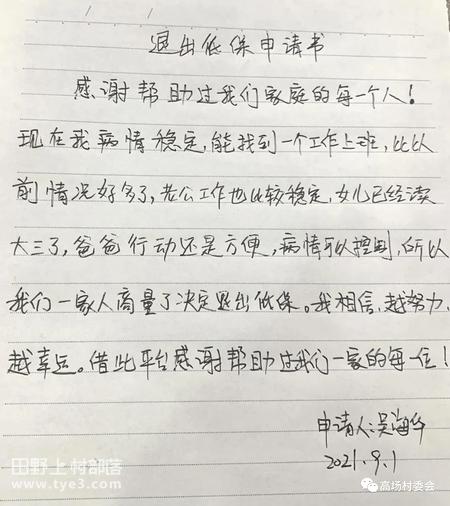 退出低保申请书
感谢帮助过我们家庭的每一个人!
现在我病情稳定,能找到一个工作上班,比以
前情况好多了,老公工作也比较稳定,女儿已经读
大三了,爸爸行动还是方便,病情可以控制,所以
我们一家人商量了决定退出低保。我相信,越努力,
越幸运。借此平台感谢帮助过我们一家的每一位!
申请人:吴海华
2021.9.1
田野上村部落
www.tye3.com
高场村委会